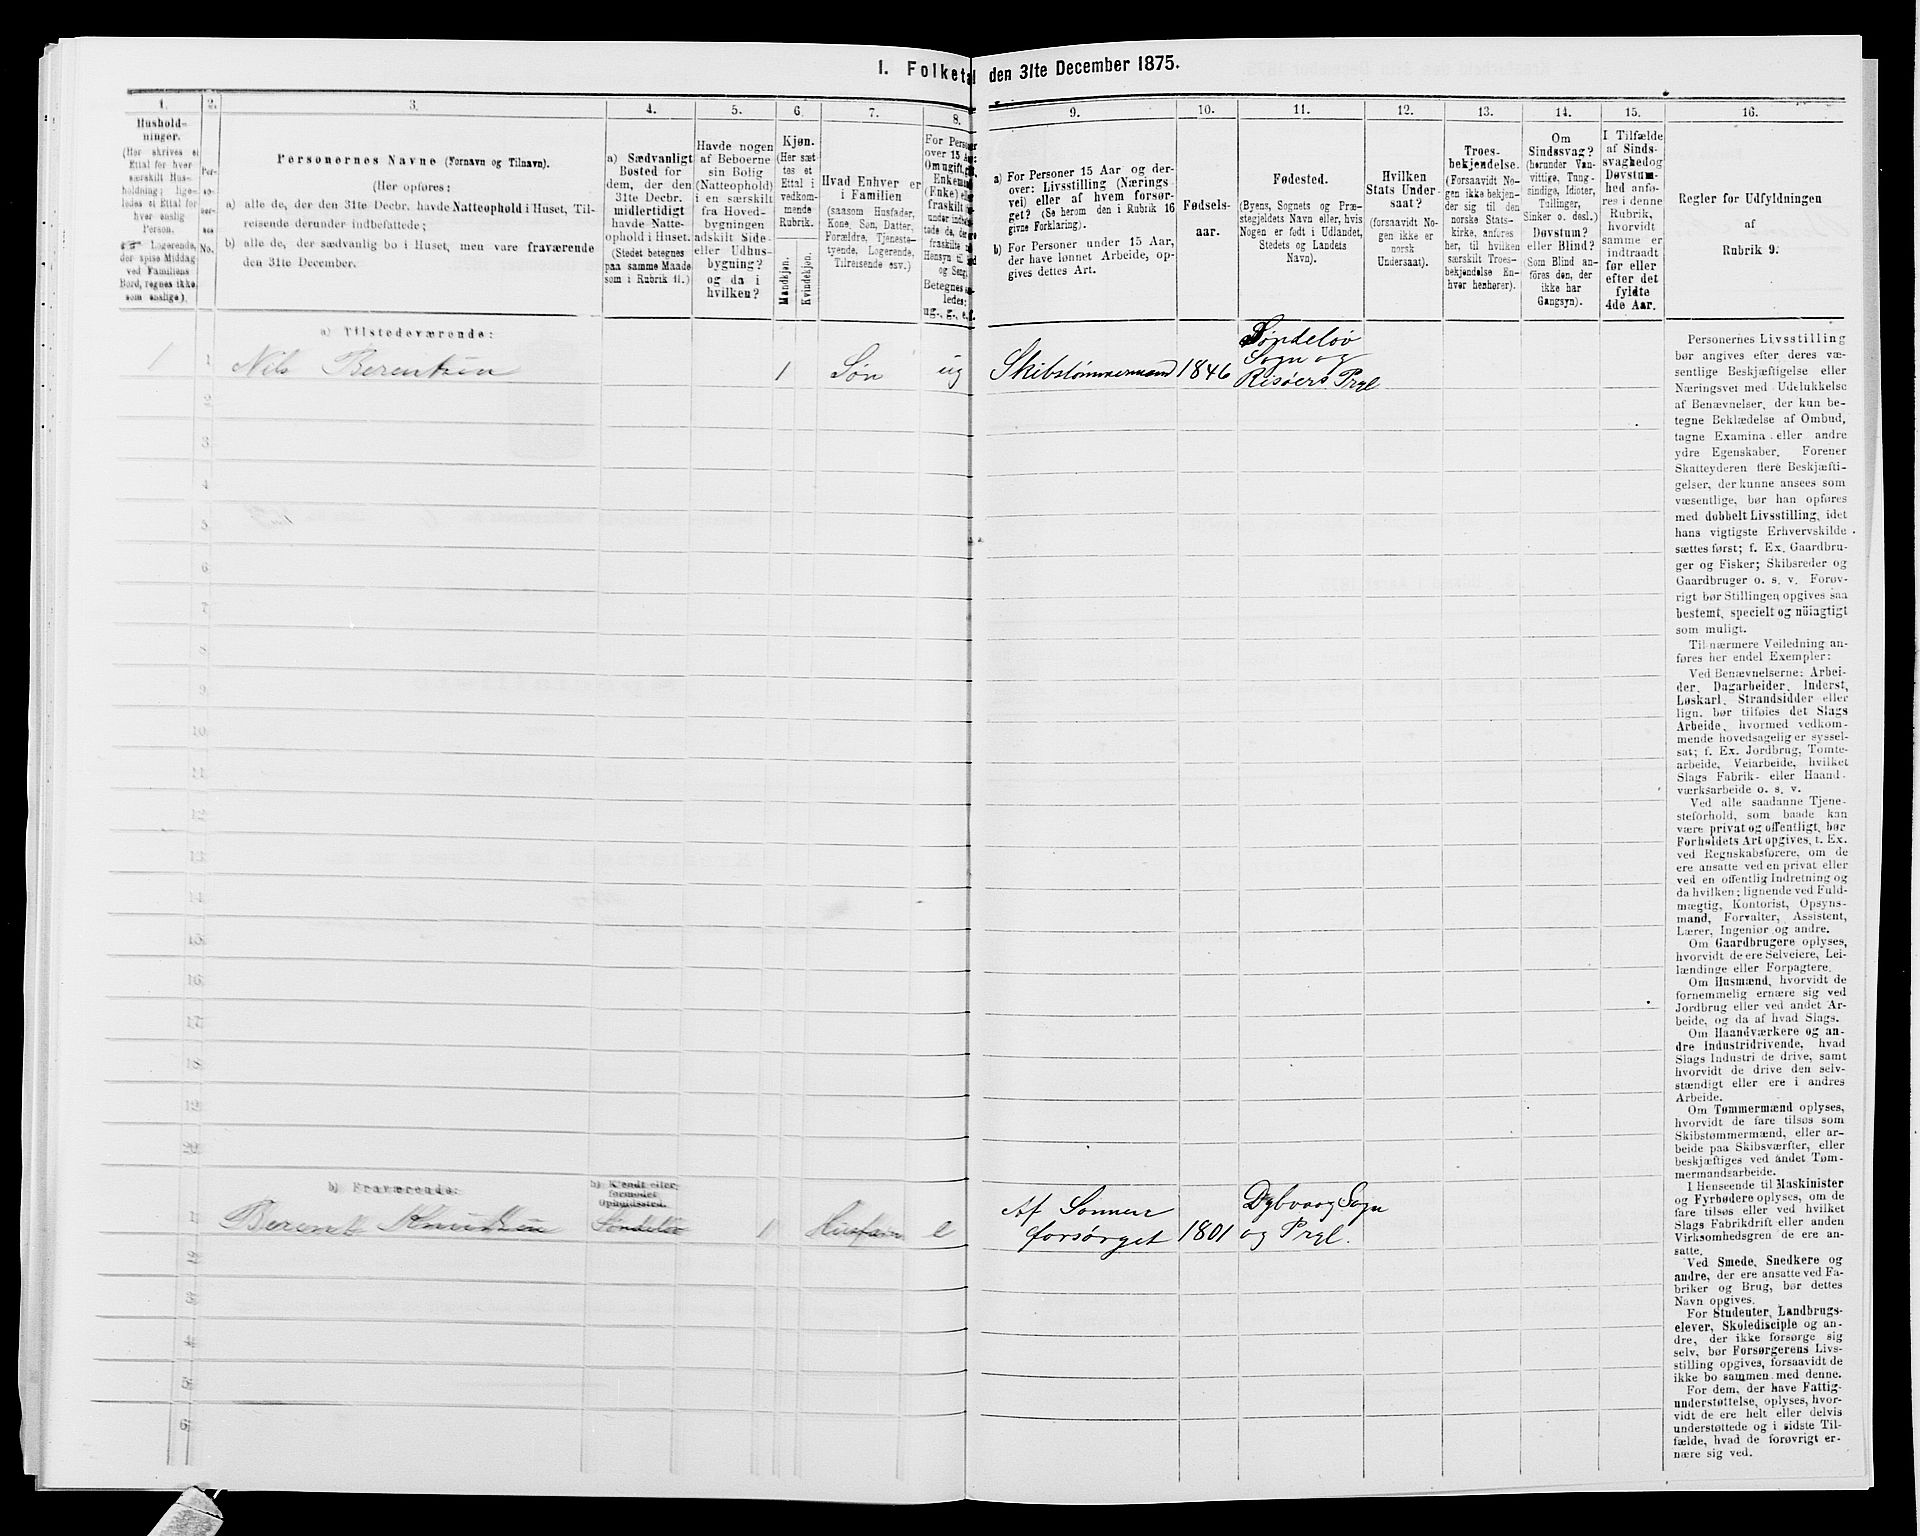 1. Folketal den 31te December 1875.
1. 2. 3. 4. 5. 6. 7. 8. 9. 10. 11. 12. 13. 14. 15. 16.
Hushold-
ninger.
(Her skrives et
Ettal for hver
særskilt Hus-
holdning; lige-
ledes et Ettal for
hver enslig
Person.
Logerende,
der spise Middag
ved Familiens
Bord, regnes ikke
som enslige).
Per-
so-
ner-
nes
No.
Personernes Navne (Fornavn og Tilnavn).
(Her opføres:
a) alle de, der den 31te Decbr. havde Natteophold i Huset, Til-
reisende derunder indbefattede;
b) alle de, der sædvanlig bo i Huset, men vare fraværende
den 31te December.
a) Sædvanligt
Bosted for
dem, der den
31te Decbr.
midlertidigt
havde Natte-
ophold i Huset.
(Stedet betegnes
paa samme Maade
som i Rubrik 11.)
Havde nogen
af Beboerne
sin Bolig
(Natteophold)
i en særskilt
fra Hoved-
bygningen
adskilt Side-
eller Udhus-
bygning?
og da i
hvilken?
Kjøn.
(Her sæt
tes et
Ettal i
vedkom-
mende
Rubrik.
Mandkjøn.
Kvindekjøn.
Hvad Enhver er
i Familien
(saasom Husfader,
Kone, Søn, Datter,
Forældre, Tjeneste-
tyende, Logerende,
Tilreisende osv.)
For Personer
over 15 Aar:
Om ugift, gift,
Enkemand
(Enke) eller
fraskilt
Betegnes saa-
ledes:
ug., g., e., f.
a) For Personer 15 Aar og der-
over: Livsstilling (Nærings-
vei) eller af hvem forsør-
get? (Se herom den i Rubrik 16
givne Forklaring).
b) For Personer under 15 Aar,
der have lønnet Arbeide, op-
gives dettes Art.
Fødsels-
aar.
Fødested.
(Byens, Sognets og Præ-
stegjeldets Navn eller, hvis
Nogen er født i Udlandet,
Stedets og Landets
Navn).
Hvilken
Stats Under-
saat?
(forsaavidt No-
gen ikke er
norsk
Undersaat).
Troes-
bekjendelse.
(Forsaavidt No-
gen ikke bekjen-
der sig til den
norske Stats-
kirke, anføres
her, til hvilken
særskilt Troes-
bekjendelse En-
hver henhører).
Om
Sindssvag?
(herunder Van-
vittige, Tung-
sindige, Idioter,
Tullinger,
Sinker o. desl.)
Døvstum?
eller Blind?
(Som Blind an-
føres den, der
ikke har
Gangsyn).
I Tilfælde
af Sinds-
svaghed og
Døvstum-
hed anfø-
res i denne
Rubrik,
hvorvidt
samme er
indtraadt
før eller
efter det
fyldte
4de Aar.
Regler for Udfyldningen
af
Rubrik 9.
a) Tilstedeværende:
1 1 Nils Berentsen 1 Søn ug Skibstømmermand 1846 Søndeløv
Sogn og
Risøers Prgl
2
3
4
5
6
7
8
9
10
11
12
13
14
15
16
17
18
19
20
b) Fraværende:
b) Kjendt eller
formodet
Opholdssted.
1 Berent Knudsen Søndeløv 1 Husfader e Af Sønnen
forsørget 1801 Dybvaag Sogn
og Prgl.
2
3
4
5
6
Personernes Livsstilling
bør angives efter deres væ-
sentlige Beskjæftigelse eller
Næringsvei med Udelukkelse
af Benævnelser, der kun be-
tegne Beklædelse af Ombud,
tagne Examina eller andre
ydre Egenskaber. Forener
Skatteyderen flere Beskjæfti-
gelser, der kunne ansees som
væsentlige, bør han opføres
med dobbelt Livsstilling, idet
hans vigtigste Erhvervskilde
sættes først; f. Ex. Gaardbru-
ger og Fisker; Skibsreder og
Gaardbruger o. s. v. Forøv-
rigt bør Stillingen opgives saa
bestemt, specielt og nöiagtigt
som muligt.
Til nærmere Veiledning an-
føres her endel Exempler:
Ved Benævnelserne: Arbei-
der, Dagarbeider, Inderst,
Løskarl, Strandsidder eller
lign. bør tilføies det Slags
Arbeide, hvormed vedkom-
mende hovedsagelig er syssel-
sat; f. Ex. Jordbrug, Tomte-
arbeide, Veiarbeide, hvilket
Slags Fabrik- eller Haand-
værksarbeide o. s. v.
Ved alle saadanne Tjene-
steforhold, som baade kan
være privat og offentligt, bør
Forholdets Art opgives, t. Ex.
ved Regnskabsførere, om de
ere ansatte ved en privat eller
ved en offentlig Indretning og
da hvilken; lignende ved Fuld-
mægtig, Kontorist, Opsyns-
mand, Forvalter, Assistent,
Lærer, Ingeniør og andre.
Om Gaardbrugere oplyses,
hvorvidt de ere Selveiere, Lei-
lændinge eller Forpagtere.
Om Husmænd, hvorvidt de
fornemmelig ernære sig ved
Jordbrug eller ved andet Ar-
beide, og da af hvad Slags.
Om Haandværkere og an-
dre Industridrivende, hvad
Slags Industri de drive, samt
hvorvidt de drive den selv-
stændigt eller ere i andres
Arbeide.
Om Tømmermænd oplyses,
hvorvidt de fare tilsøs som
Skibstømmermænd, eller ar-
beide paa Skibsværfter, eller
beskjæftiges ved andet Tøm-
mermandsarbeide.
I Henseende til Maskinister
og Fyrbødere oplyses, om de
fare tilsøs eller ved hvilket
Slags Fabrikdrift eller anden
Virksomhedsgren de ere an-
satte.
Ved Smede, Snedkere og
andre, der ere ansatte ved Fa-
briker og Brug, bør dettes
Navn opgives.
For Studenter, Landbrugs-
elever, Skoledisciple og an-
dre, der ikke forsørge sig
selv, bør Forsørgerens Livs-
stilling opgives, forsaavidt de
ikke bo sammen med denne.
For dem, der have Fattig-
understøttelse, oplyses, hvor-
vidt de ere helt eller delvis
understøttede og i sidste Til-
fælde, hvad de forøvrigt er-
nære sig ved.